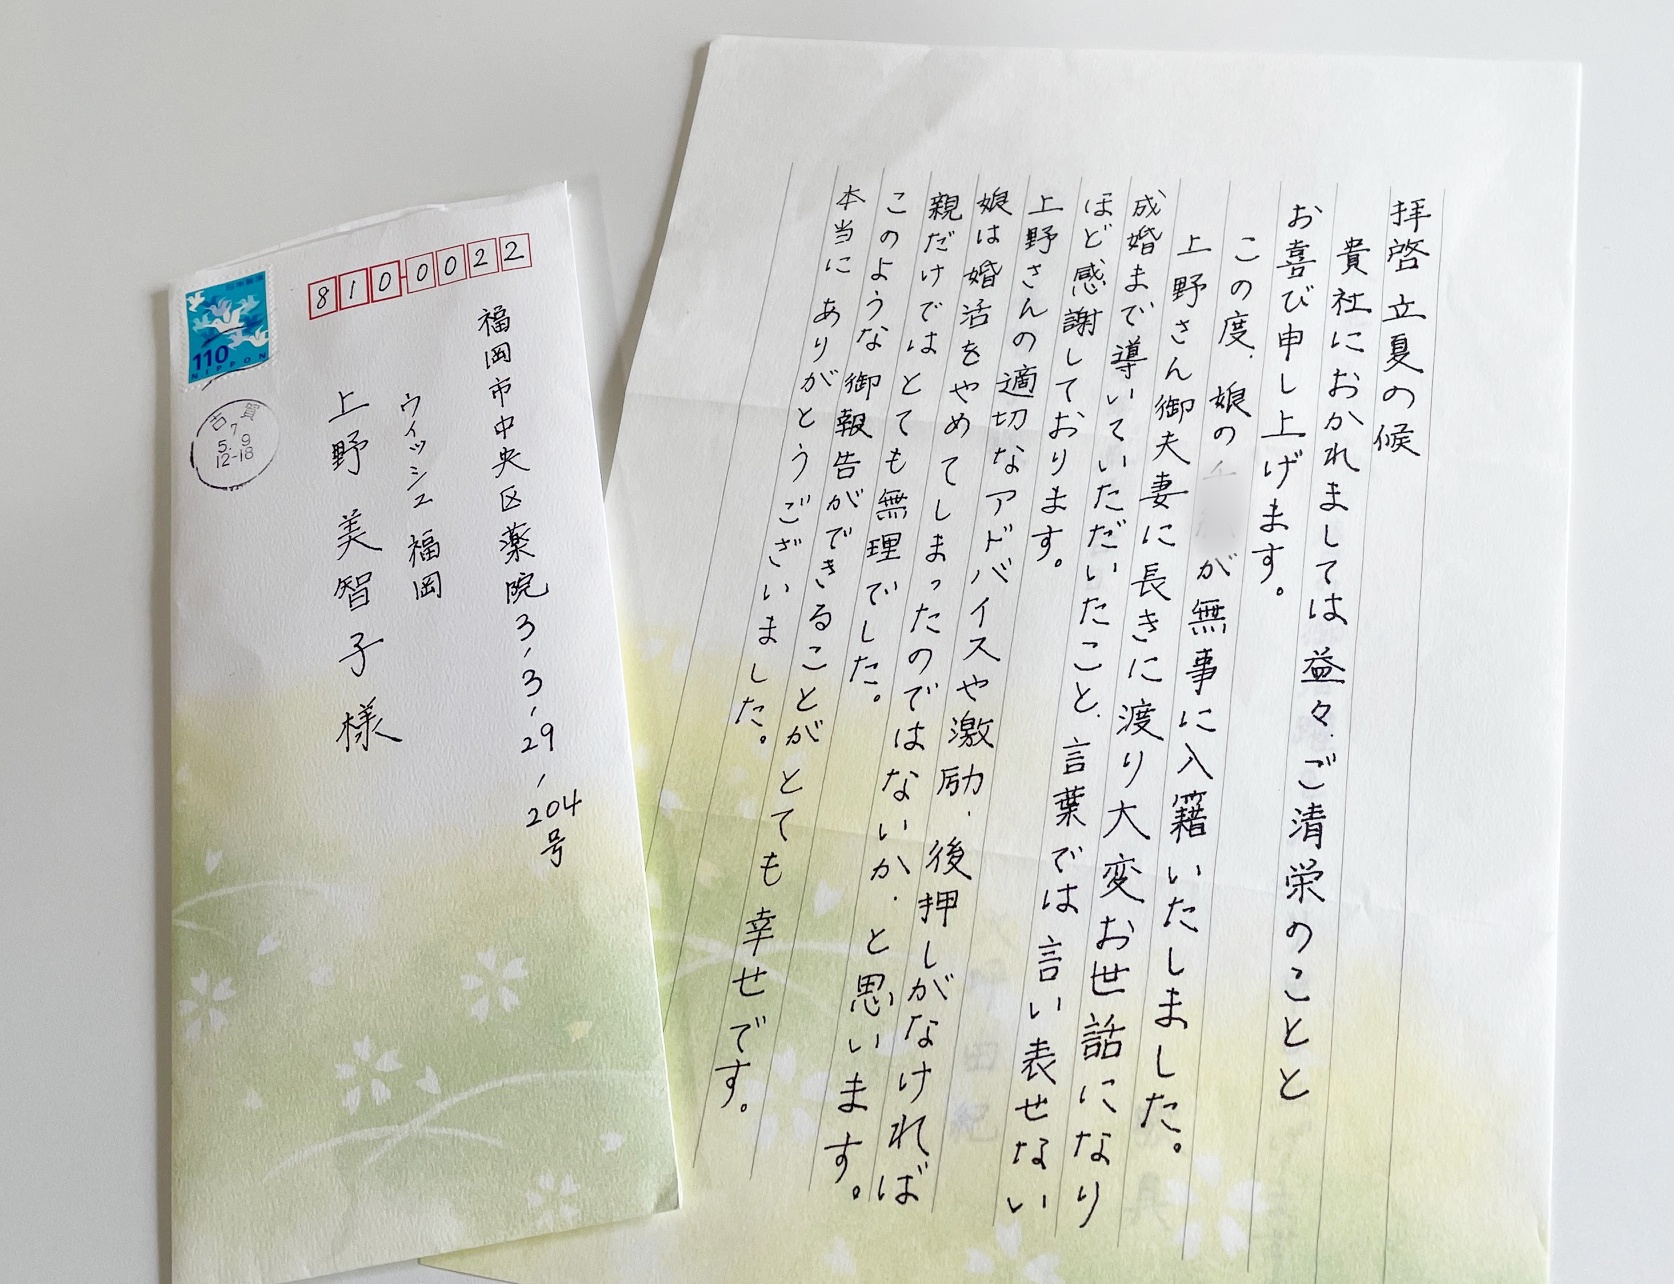 拝啓 立夏の候
貴社におかれましては益々ご清栄のことと
お喜び申し上げます。
この度、娘の が無事に入籍いたしました。
上野さん御夫妻に長きに渡り大変お世話になり
成婚まで導いていただいたこと、言葉では言い表せない
ほど感謝しております。
上野さんの適切なアドバイスや激励、後押しがなければ
娘は婚活をやめてしまったのではないか、と思います。
親だけではとても無理でした。
このような御報告ができることがとても幸せです。
本当に ありがとうございました。
810-0022
福岡市中央区薬院3-3-29-204号
ウィッシュ福岡
上野 美智子 様
日本郵便
110
NIPPON
古賀
7
5.9
12-18